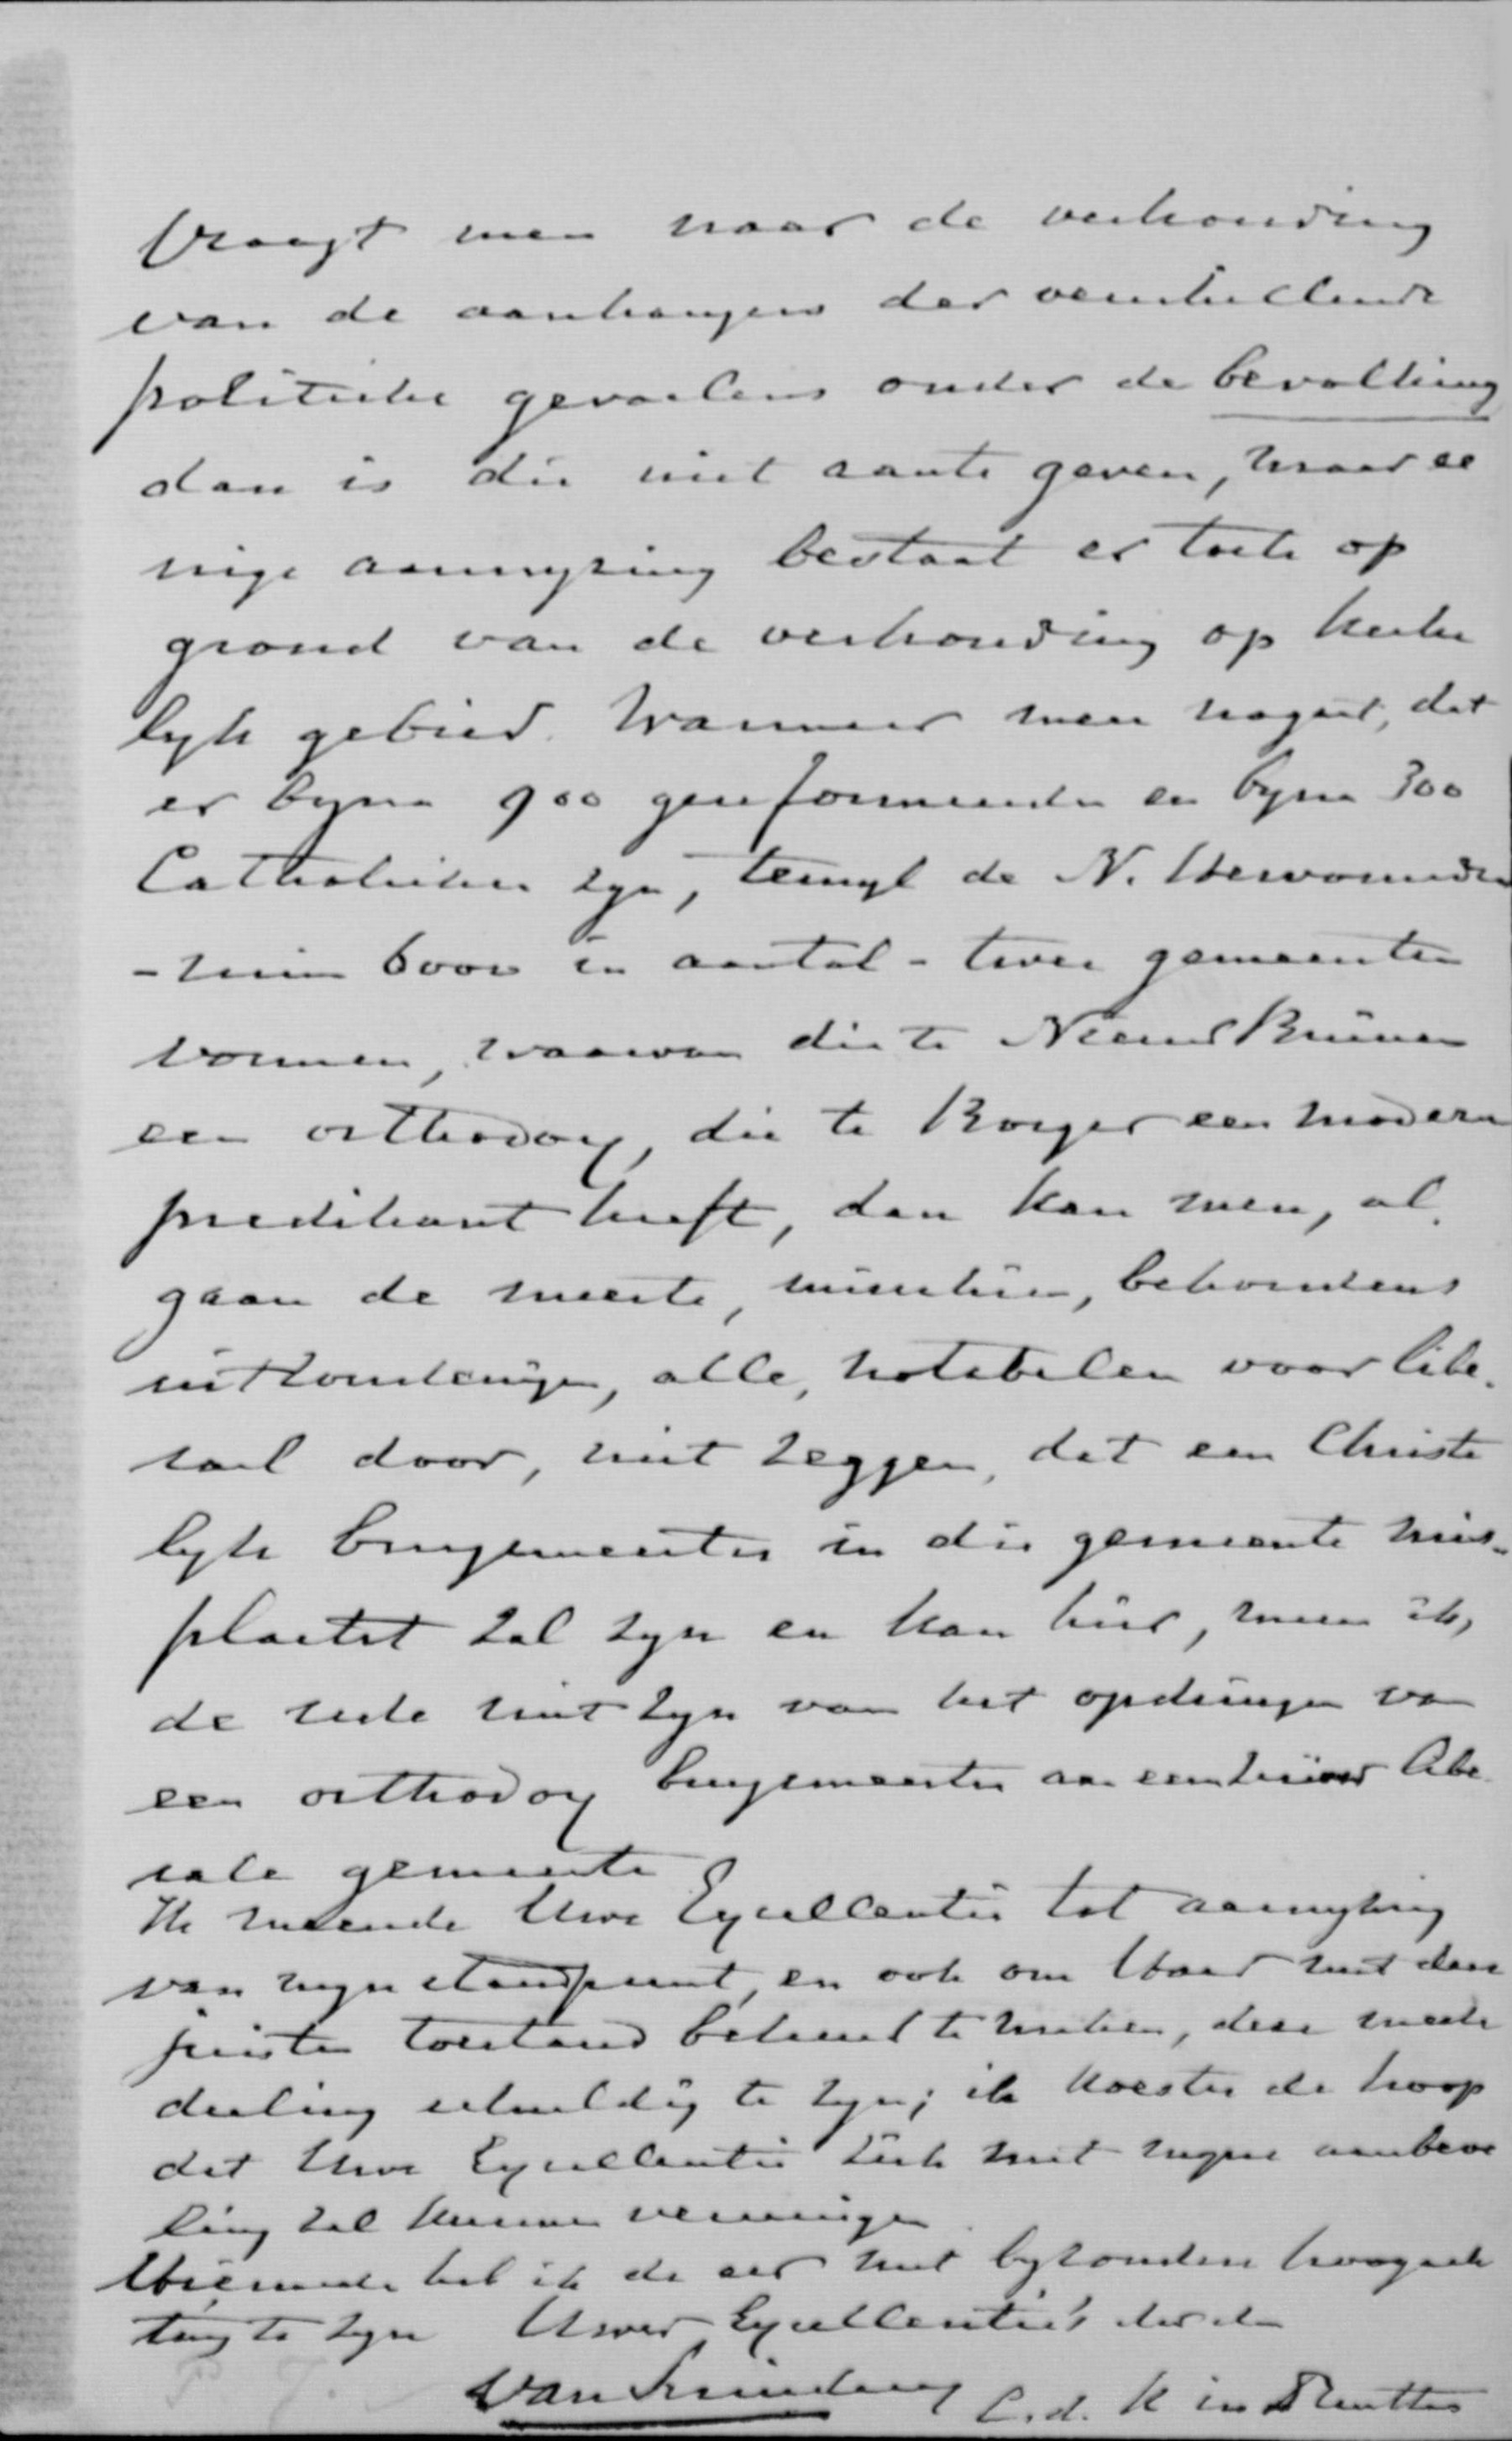 Vraagt men naar de verhouding
van de aanhangers der verschillende
politieke gevoelens onder de bevolking
dan is die niet aan te geven, maar ee
nige aanwyzing bestaat er toch op
grond van de verhouding op kerke
lyk gebied. Wanneer men nagaat, dat
er byna 900 gereformeerden en byna 300
Catholieken zyn, terwyl de N. Hervormden
- ruim 6000 in aantal - twee gemeenten
vormen, waarvan die te Nieuw Buinen
een orthodox, die te Borger een modern
predikant heeft, dan kan men, al
gaan de meeste, misschien, behoudens
uitzonderingen, alle, notabelen voor libe.
raal door, niet zeggen, dat een Christe
lyk burgemeester in die gemeente mis-
plaatst zal zyn en kan hier, meen ik,
de rede niet zyn van het opdringen van
een orthodox burgemeester aan een zuiver libe
rale gemeente
Ik meende Uwe Excellentie tot aanwyzing
van myn standpunt, en ook om Haar met den
juisten toestand bekend te maken, deze mede
deeling schuldig te zyn; ik koester de hoop
dat Uwe Excellentie zich met myne aanbeve
ling zal kunnen vereenigen
Hiermede heb ik de eer met byzondere hoogach
ting te zyn Uwer Excellentie's dw dn
C. d. K in Drenthe